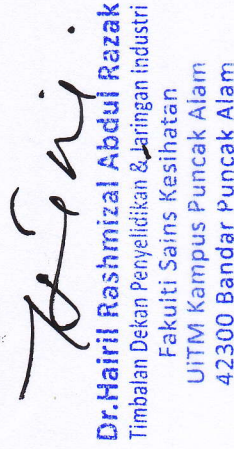 Dr.Hairil Rashmizal Abdul Razak
Timbalan Dekan Penyelidikan & Jaringan Industri
Fakulti Sains Kesihatan
UiTM Kampus Puncak Alam
42300 Bandar Puncak Alam